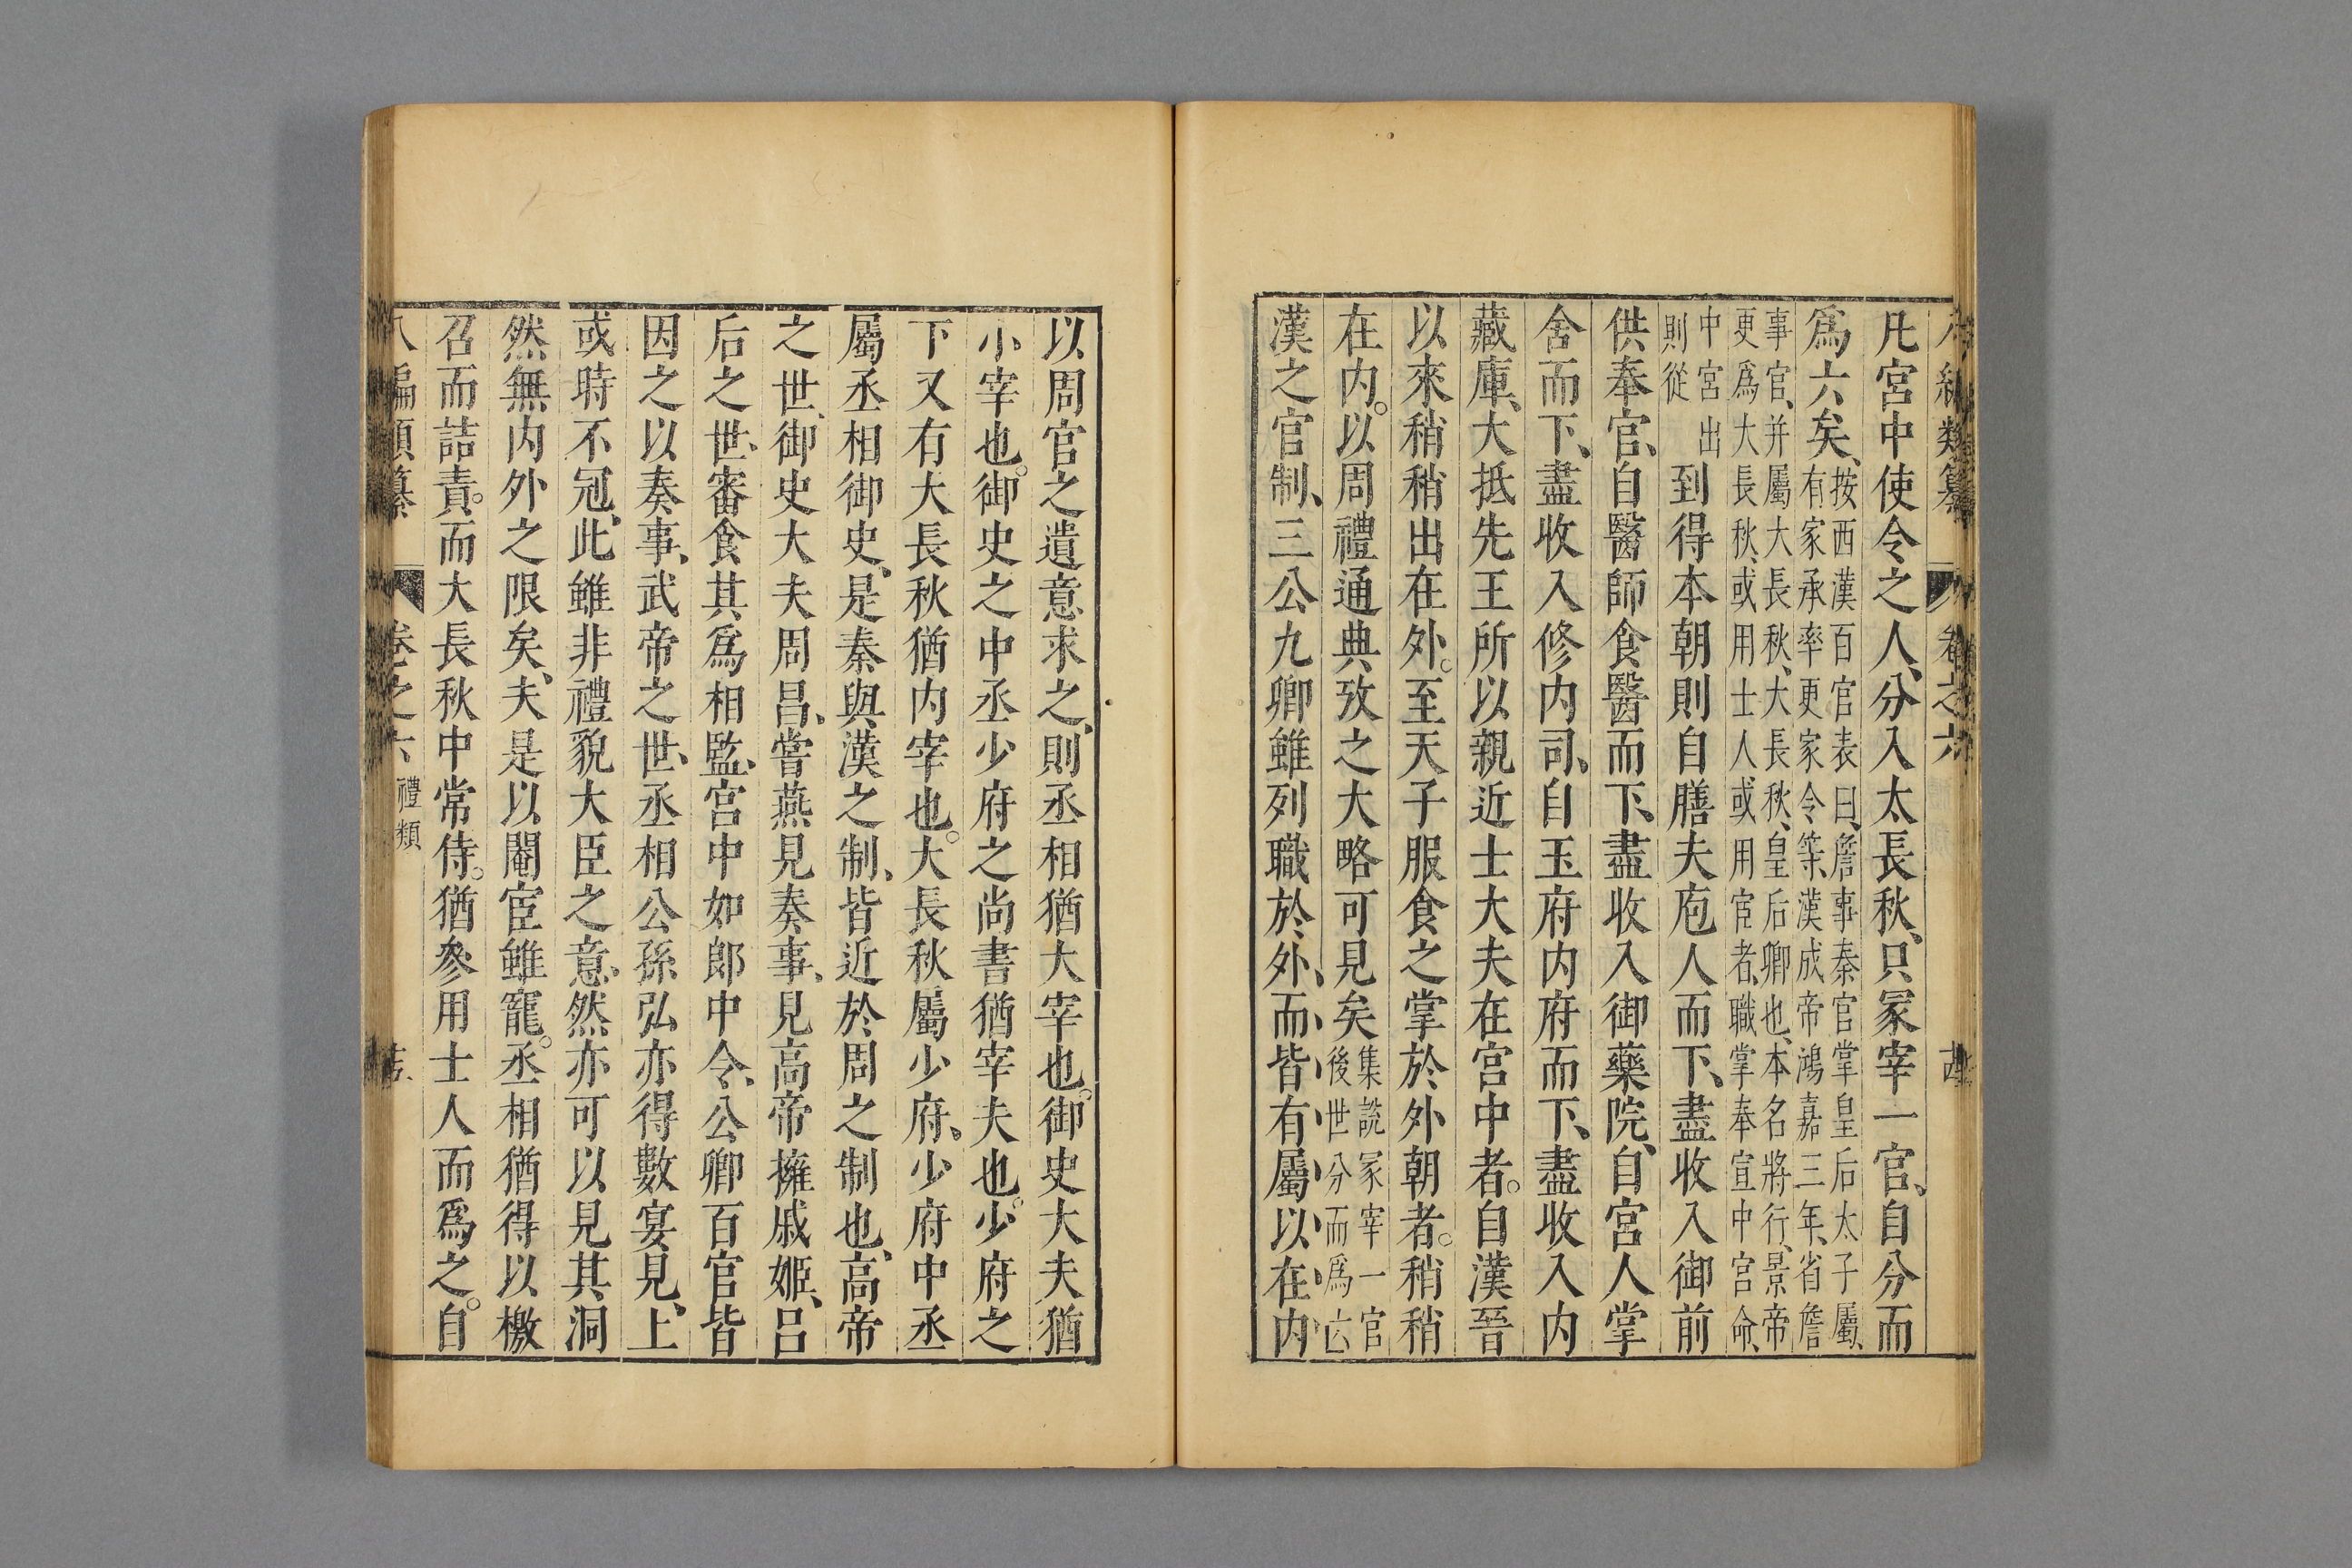 凡宮中使令之人、分入太長秋、只冢宰一官、自分而
爲六矣、按西漢百官表曰、詹事秦官掌皇后太子屬、
有家承率更家令等、漢成帝鴻嘉三年、省詹
事官、并屬大長秋、大長秋、皇后卿也、本名將行、景帝
更爲大長秋、或用士人或用宦者、職掌奉宣中宮命、
中宮出
則從
到得本朝則自膳夫庖人而下、盡收入御前
供奉官、自醫師食醫而下、盡收入御藥院、自宮人掌
舍而下、盡收入修內司、自玉府內府而下、盡收入內
藏庫、大抵先王所以親近士大夫在宮中者。自漢晉
以來稍稍出在外。至天子服食之掌於外朝者。稍稍
在內。以周禮通典攷之大略可見矣集說冢宰一官
後世分而爲六
漢之官制、三公九卿雖列職於外、而皆有屬以在內
以周官之遺意求之、則丞相猶大宰也。御史大夫猶
小宰也。御史之中丞少府之尚書猶宰夫也。少府之
下又有大長秋猶內宰也。大長秋屬少府、少府中丞
屬丞相御史、是秦與漢之制、皆近於周之制也、高帝
之世、御史大夫周昌、嘗燕見奏事、見高帝擁戚姬、呂
后之世、審食其爲相、監宮中如郎中令、公卿百官皆
因之以奏事、武帝之世、丞相公孫弘亦得數宴見、上
或時不冠、此雖非禮貌大臣之意、然亦可以見其洞
然無內外之限矣、夫是以閹宦雖寵。丞相猶得以檄
召而詰責。而大長秋中常侍。猶參用士人而爲之。自
八編類纂 卷之六 禮類